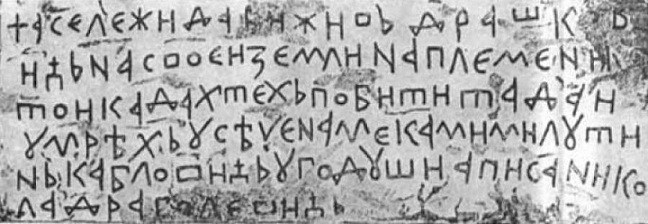 + А СЕ ЛЕЖИ ДАБИЖИВЬ ДРАШКОВ
ИЋЬ НА СВОЕИ ЗЕМЛИ НА ПЛЕМЕНИ
ТОИ КАДА ХТЕХЬ ПОБИТИ ТАДА И
УМРѢХЬ УСѢЧЕ НА МЕ КАМИ МИЛУТИ
НЬ КАБЛОВИЋЬ У ГОДУШИ А ПИСА НИКО
ЛА ДРАГОЛЕВИЋЬ